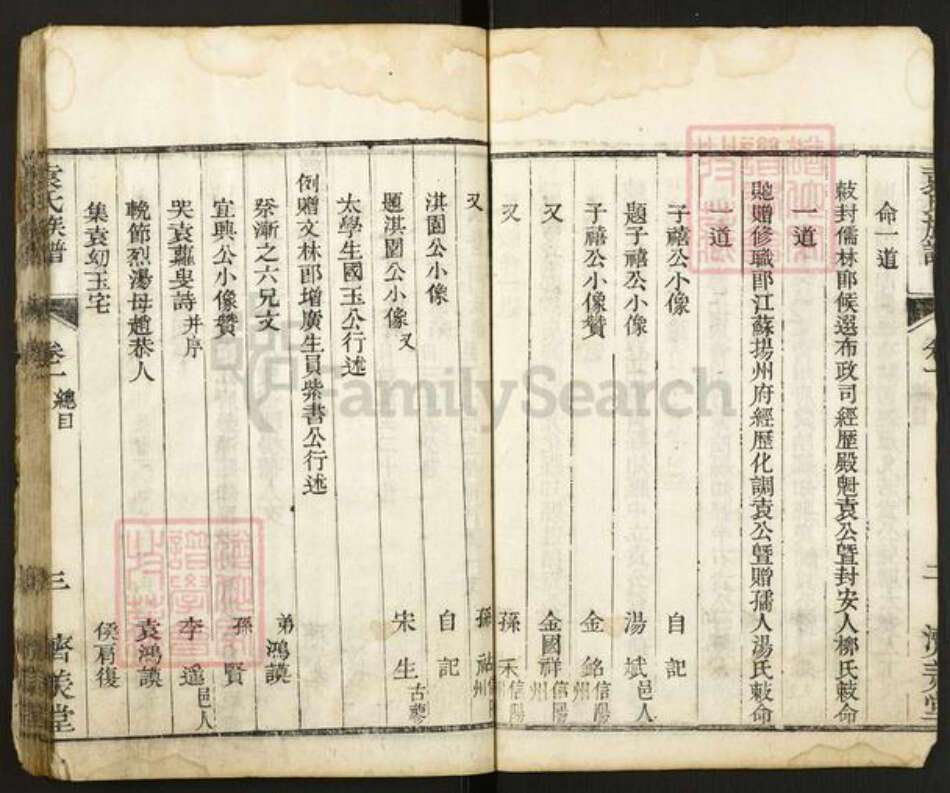 命一道
敕封儒林郎候選布政司經歷殿魁袁公暨封安人柳氏敕命
一道
貤贈修職郎江蘇揚州府經歷化調袁公暨贈孺人湯氏敕命
一道
子禧公小像 自記
題子禧公小像 湯斌邑人
子禧公小像贊 金銘信陽州
又 金國祥信陽州
又 孫禾信陽
又 孫
淇園公小像 自記
題淇園公小像 又 宋生古蓼
太學生國玉公行述
例贈文林郎增廣生員紫書公行述
祭漸之六兄文 弟鴻謨
宜興公小像贊 孫賢
哭袁蘿叟詩 并序 李遥邑人
輓節烈湯母趙恭人 袁鴻謨
集袁幼玉宅 侯肩復
袁氏族譜 卷一 總目 三 濟美堂
FamilySearch